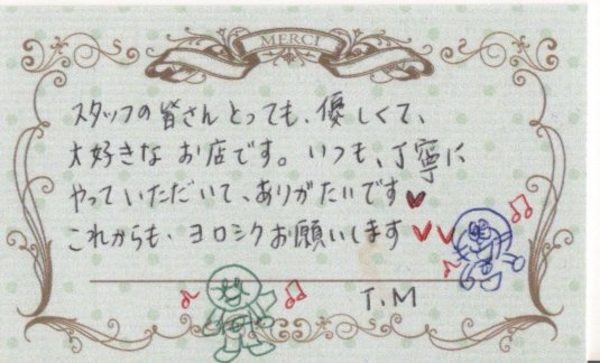 MERCI
スタッフの皆さんとっても、優しくて、
大好きなお店です。いつも、丁寧に
やっていただいて、ありがたいです♥
これからも、ヨロシクお願いします♥♥
T.M